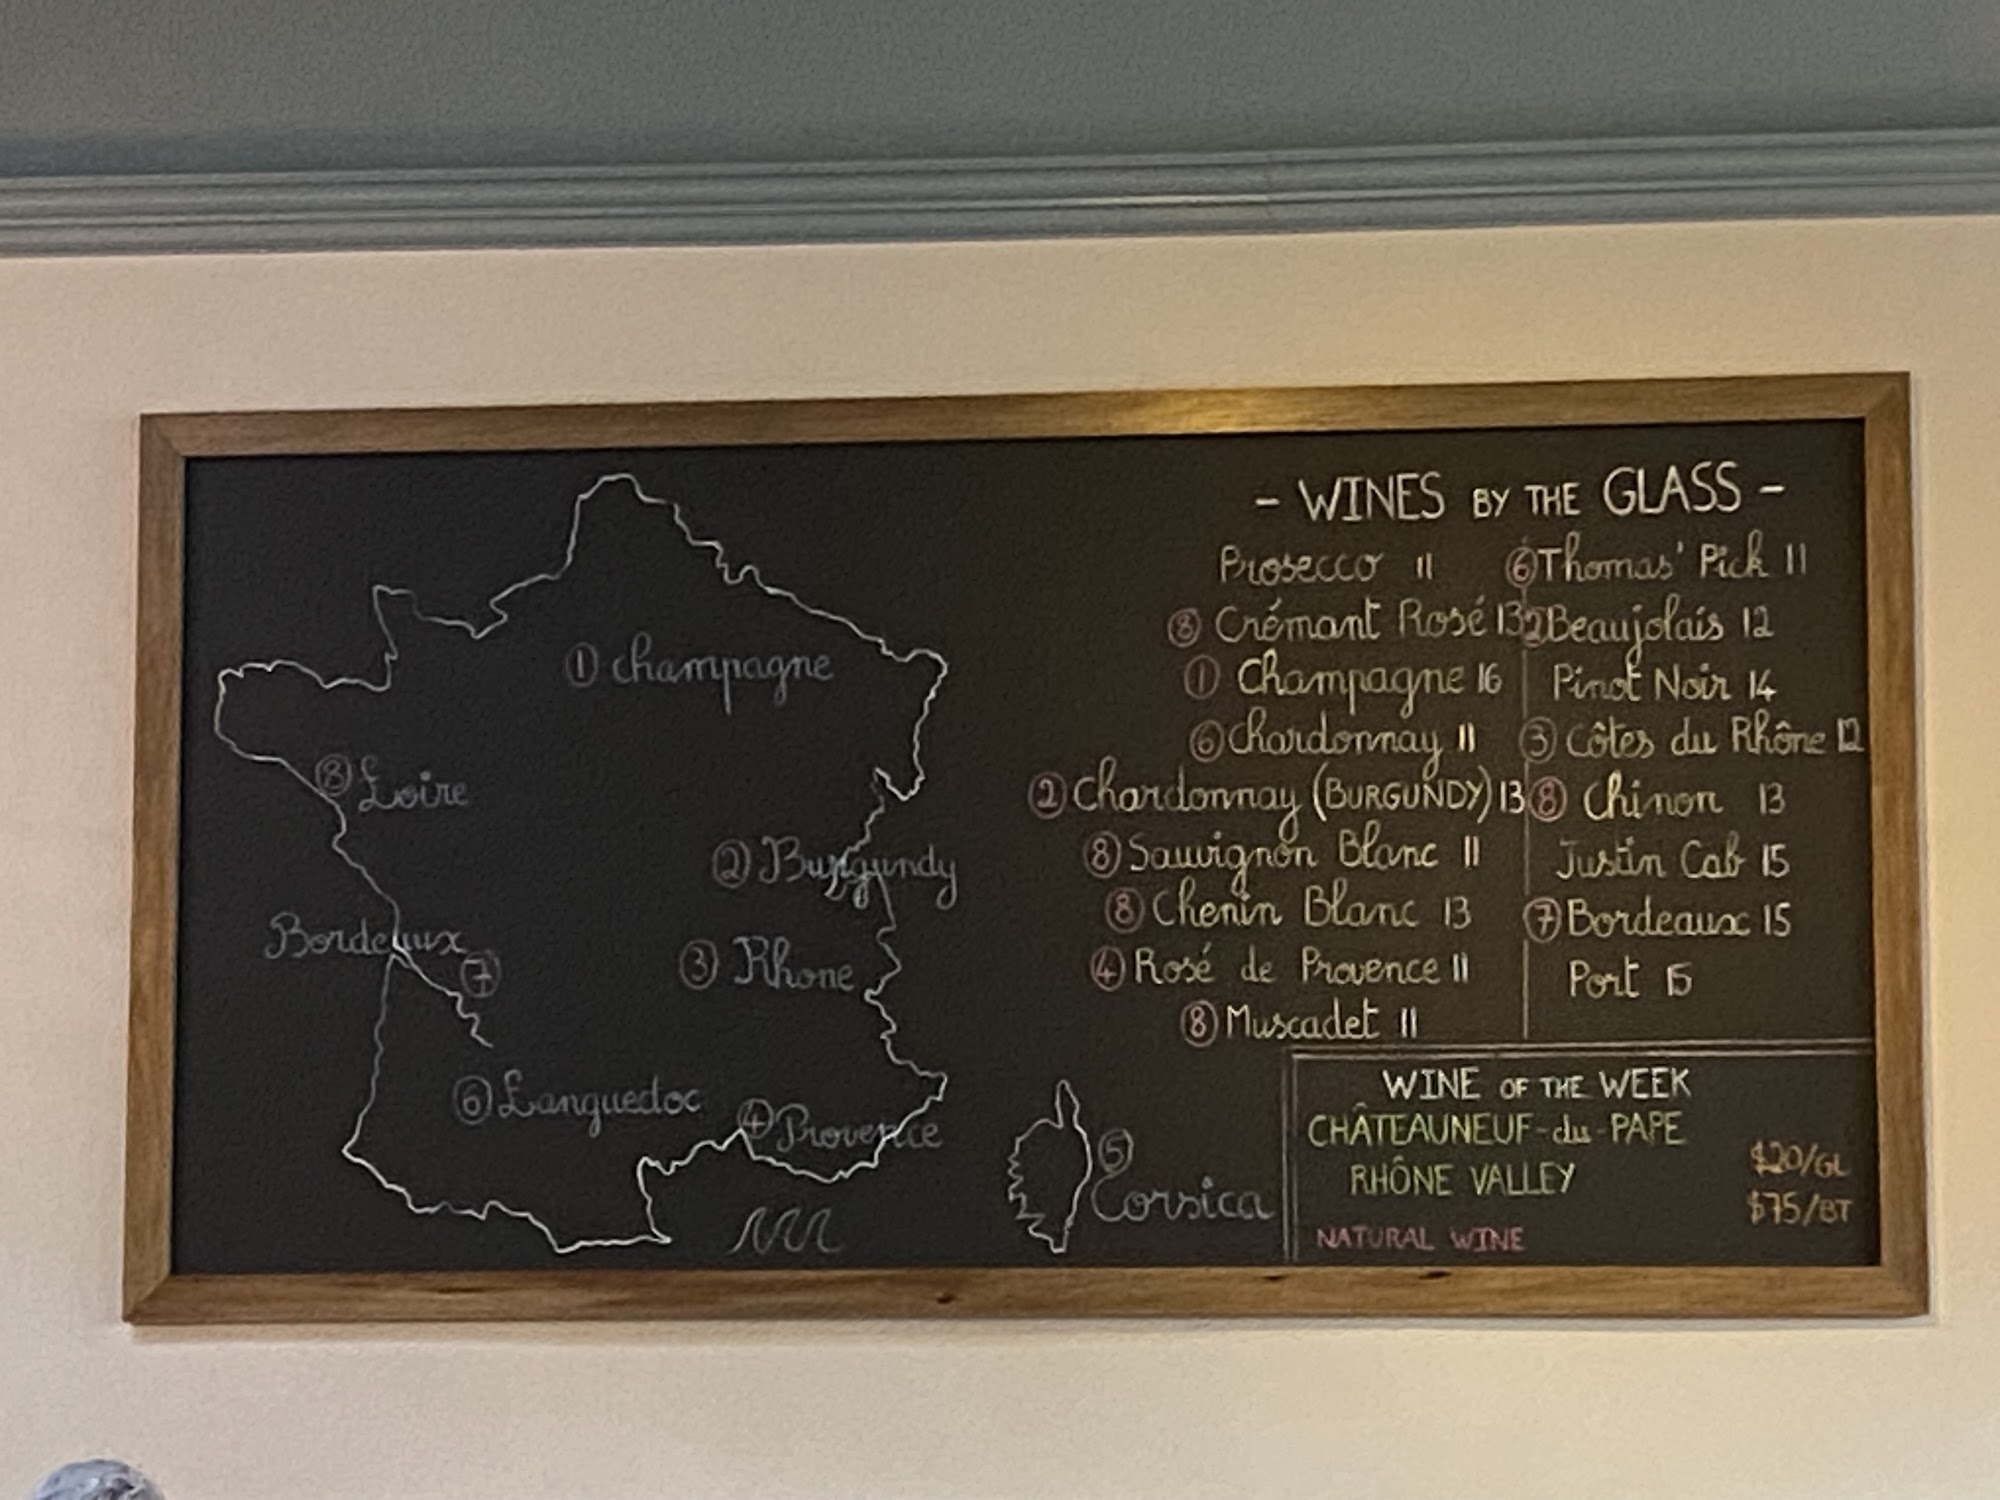 ① Champagne
⑧ Loire
② Burgundy
Bordeaux
⑦
③ Rhone
⑥ Languedoc
④ Provence
⑤
Corsica
- WINES BY THE GLASS -
Prosecco 11
⑧ Crémant Rosé 13
① Champagne 16
⑥ Chardonnay 11
② Chardonnay (BURGUNDY) 13
⑧ Sauvignon Blanc 11
⑧ Chenin Blanc 13
④ Rosé de Provence 11
⑧ Muscadet 11
⑥ Thomas' Pick 11
② Beaujolais 12
Pinot Noir 14
③ Côtes du Rhône 12
⑧ Chinon 13
Justin Cab 15
⑦ Bordeaux 15
Port 15
WINE OF THE WEEK
CHÂTEAUNEUF-du-PAPE
RHÔNE VALLEY
$20/GL
$75/BT
NATURAL WINE